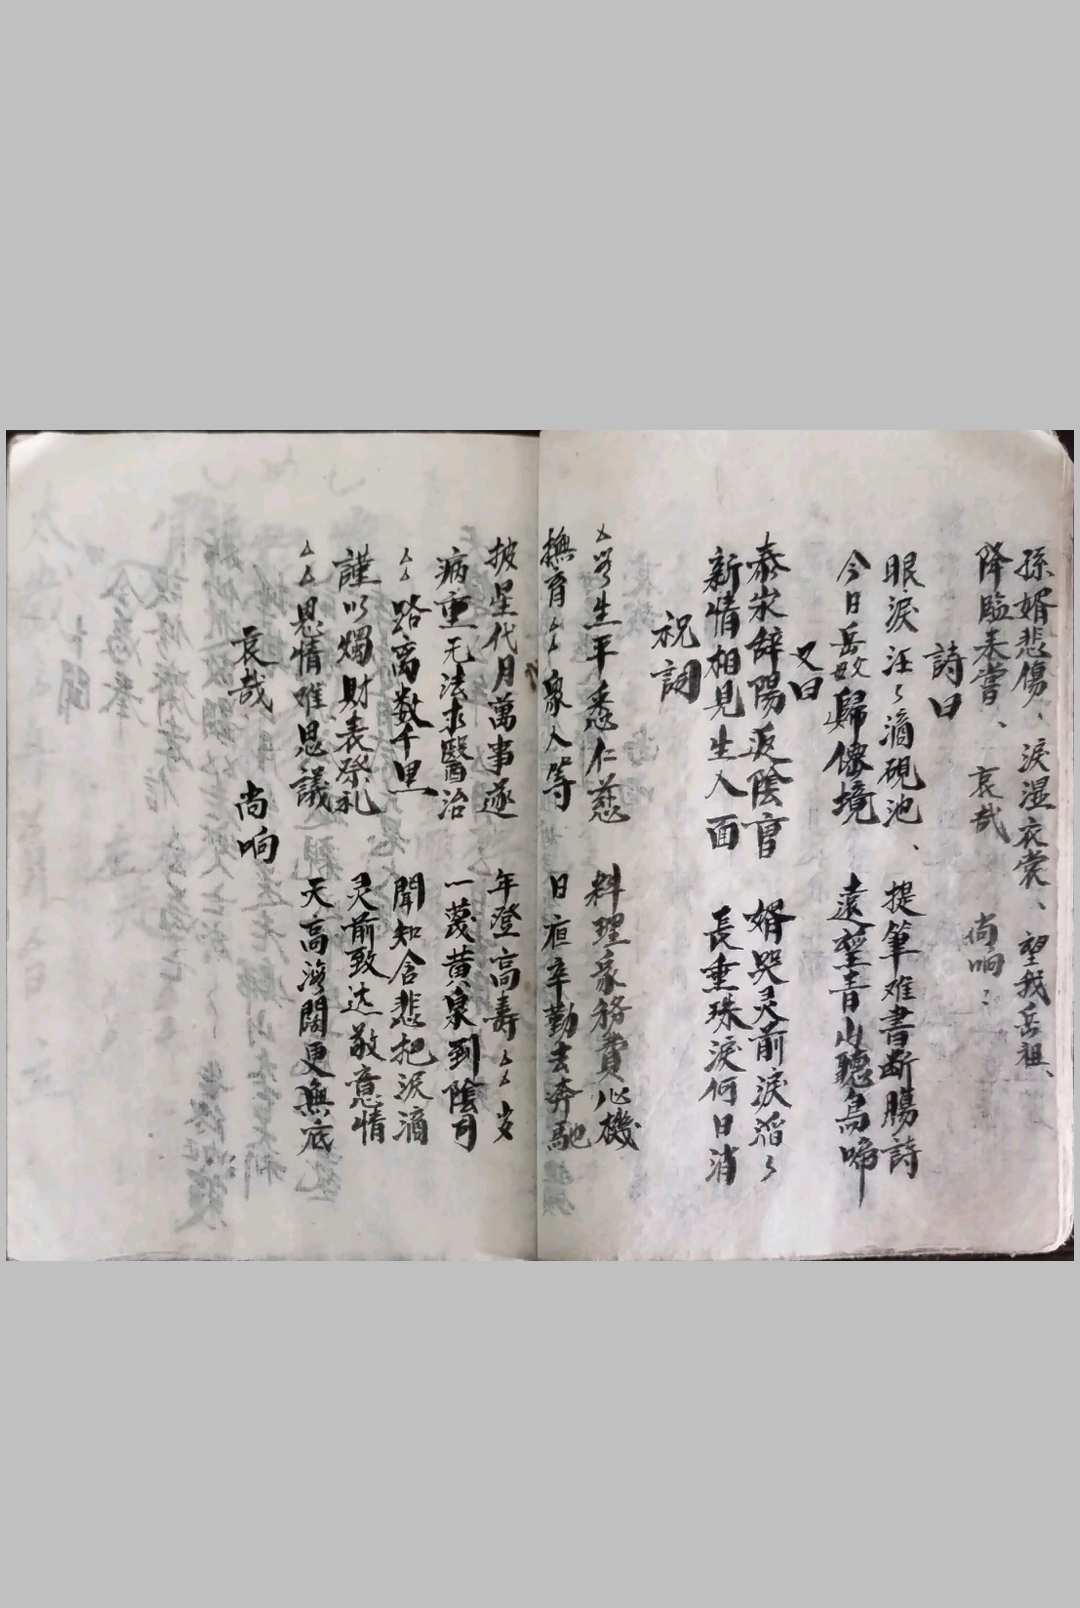 孫婿悲傷、淚濕衣裳、望我岳祖、
降臨來嘗、哀哉 尚响
詩曰
眼淚汪々滴硯池、提筆难書断腸詩
今日岳母歸僊境 遠望青山聽鳥啼
又曰
泰水辞陽返陰宫 婿哭灵前淚滔々
新情相見生人面 長垂珠淚何日消
祝詞
生平悉仁慈 料理家務費心機
撫育厶厶衆人等 日夜辛勤去奔馳
披星代月萬事逐 年澄高壽厶厶岁
病重无法求醫治 一蕟黄泉到陰司
厶厶路离数千里 聞知含悲把淚滴
謹以燭財表祭礼 灵前致达敬意情
厶厶恩情难思議 天高海闊更無底
哀哉 尚响